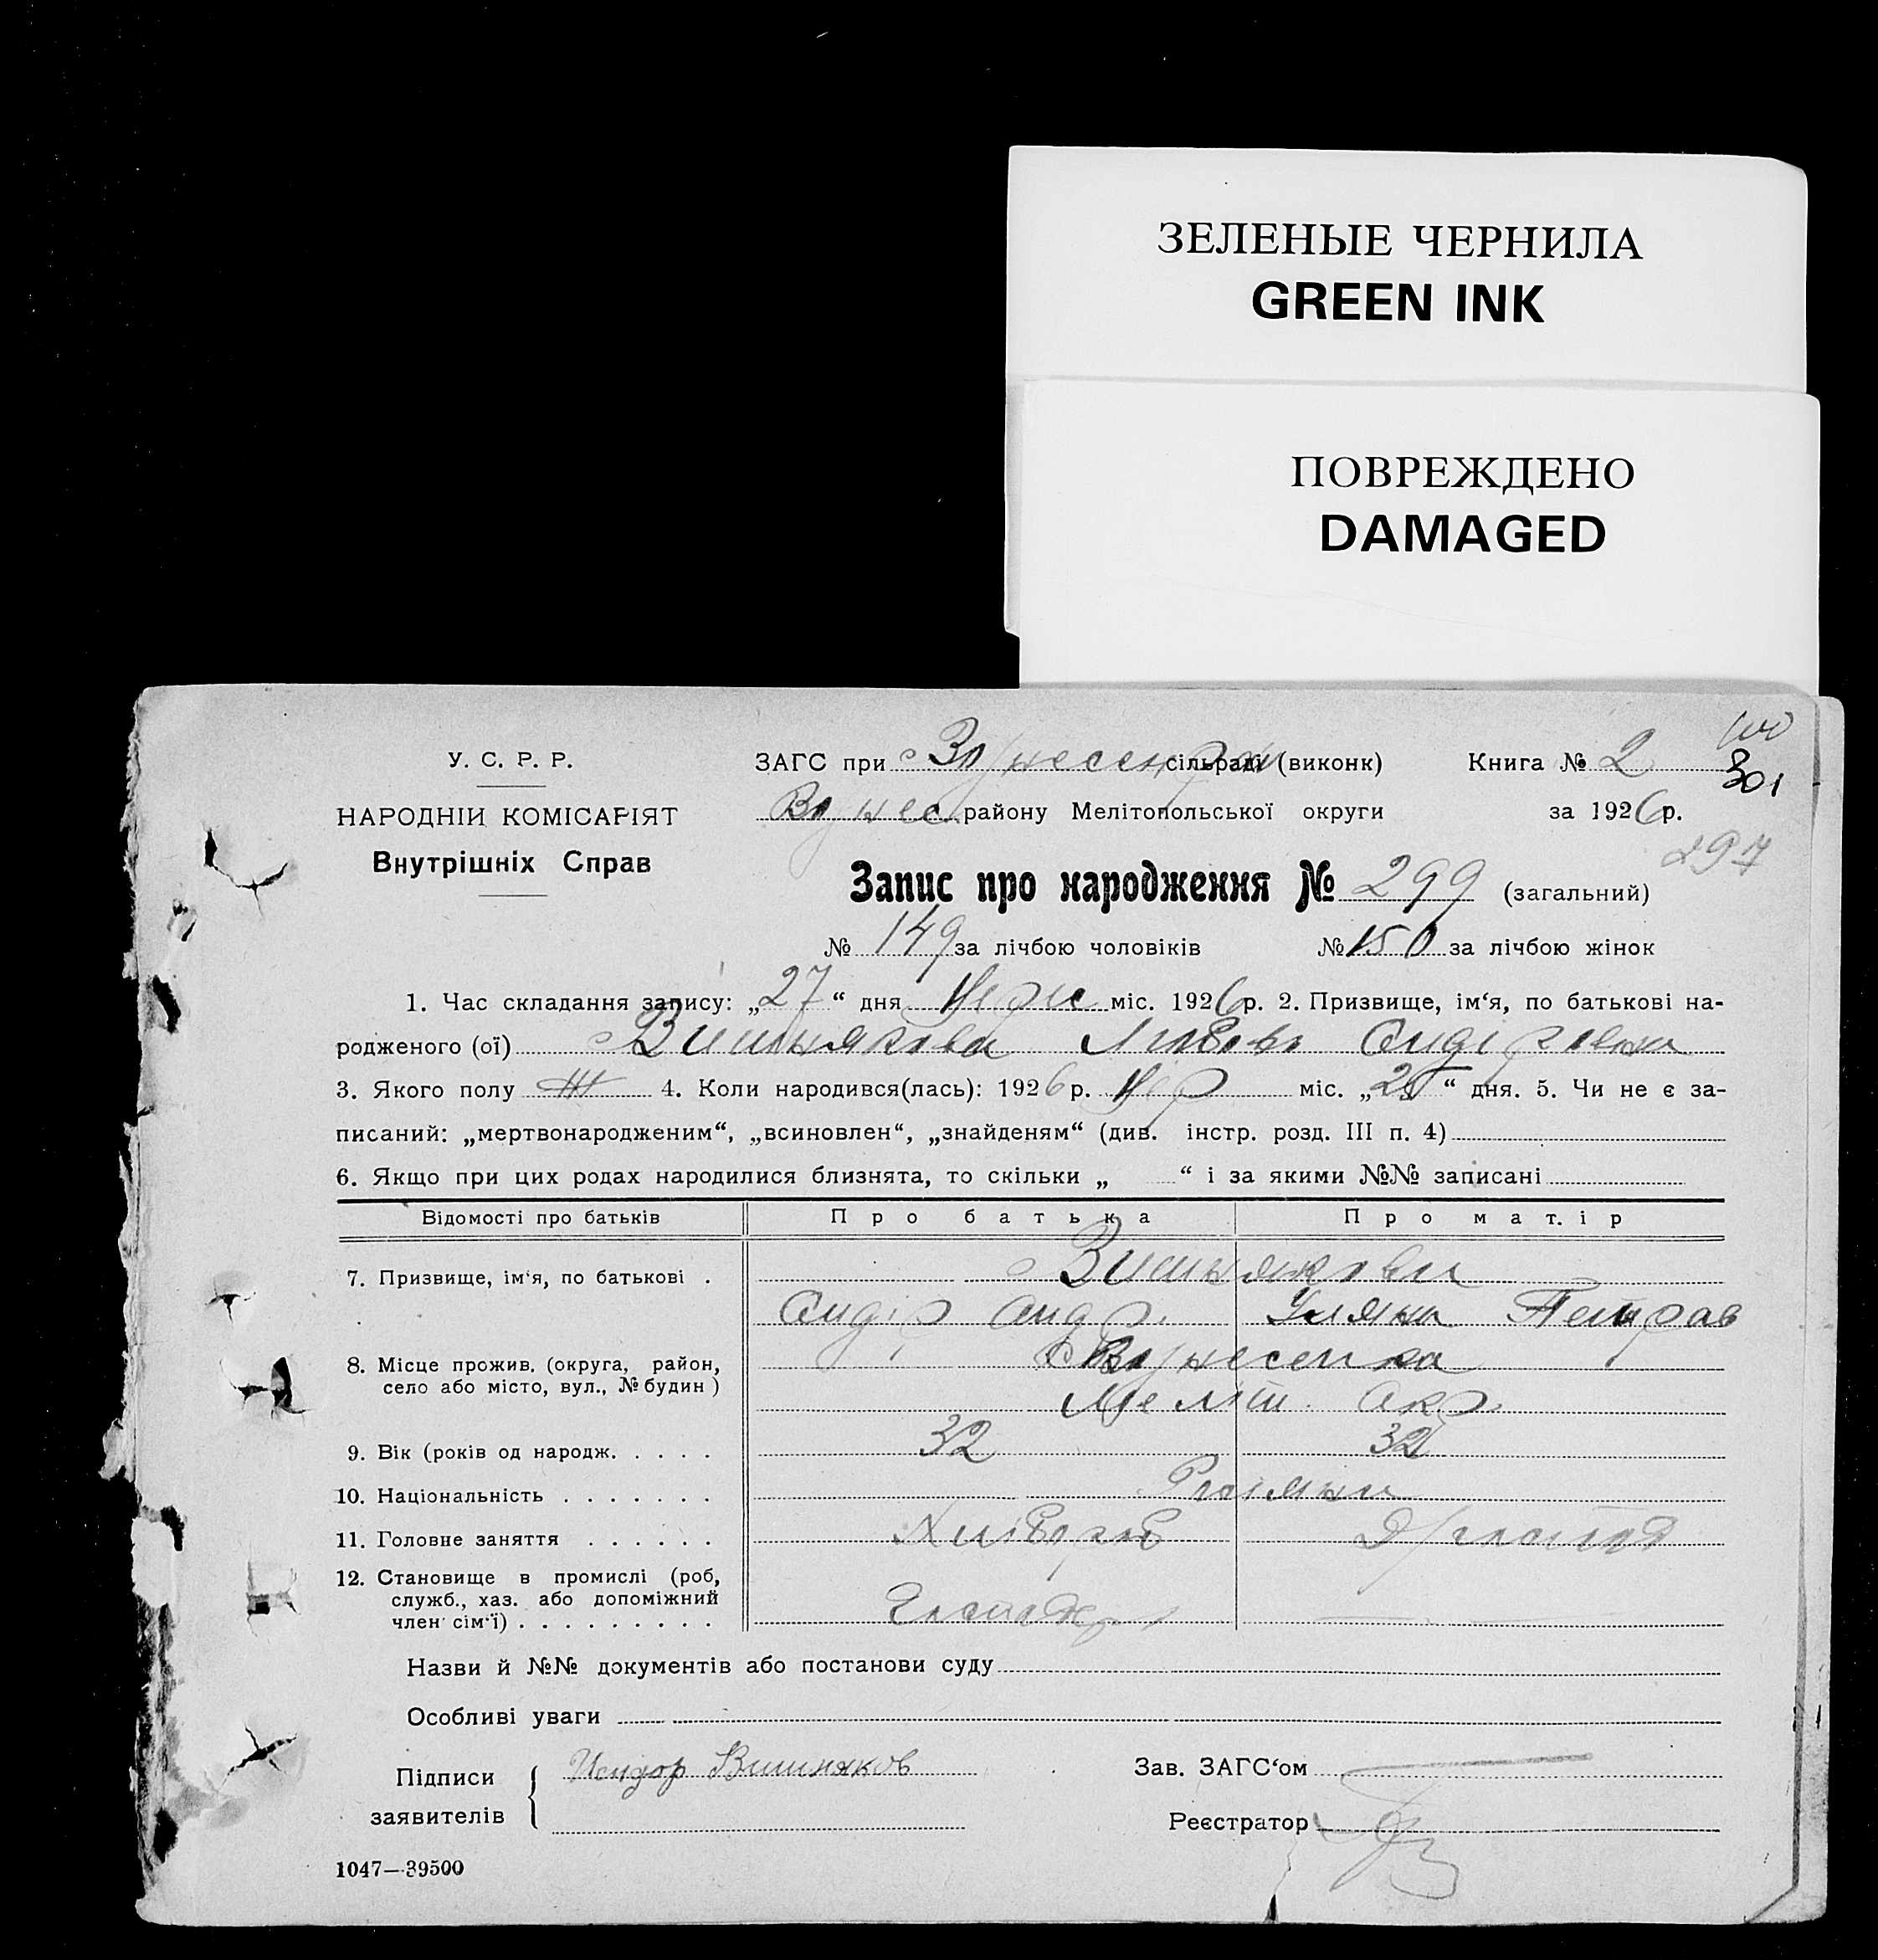 ЗЕЛЕНЫЕ ЧЕРНИЛА
GREEN INK
ПОВРЕЖДЕНО
DAMAGED
У. С. Р. Р.
НАРОДНІЙ КОМІСАРІЯТ
Внутрішніх Справ
ЗАГС при Вознесенській сільраді (виконк) Книга № 2
301
Вознес. району Мелітопольської округи за 1926 р.
297
Запис про народження № 299 (загальний)
№ 149 за лічбою чоловіків № 150 за лічбою жінок
1. Час складання запису: „27“ дня міс. 1926 р. 2. Призвище, ім‘я, по батькові на-
родженого (ої) Вишнякова Любовь
3. Якого полу Ж 4. Коли народився(лась): 1926 р. міс. „25“ дня. 5. Чи не є за-
писаний: „мертвонародженим“, „всиновлен“, „знайденям“ (див. інстр. розд. III п. 4)
6. Якщо при цих родах народилися близнята, то скільки „ “ і за якими №№ записані
Відомості про батьків Про батька Про матір
7. Призвище, ім‘я, по батькові . Вишнякови
Уляна Петров
8. Місце прожив. (округа, район, Вознесенка
село або місто, вул., № будин )
Меліт. окр.
9. Вік (років од народж. . . . . 32 32
10. Національність . . . . . . .
11. Головне заняття . . . . . . Хлібороб
12. Становище в промислі (роб,
служб., хаз. або допоміжний
член сім‘ї) . . . . . . . . .
Назви й №№ документів або постанови суду
Особливі уваги
Підписи Исидор Вишняков Зав. ЗАГС‘ом
заявителів Реєстратор
1047—39500